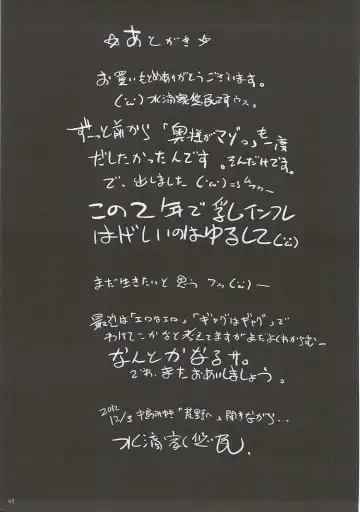 ☆あとがき☆
お買いもとめありがとうございます。
(ﾟωﾟ) 水滴家悠民ですウス。
ずーっと前から「奥様がマゾっ」も一度
だしたかったんです。そんだけです。
で、出しました
この2年で乳インフレ
はげしいのはゆるして
まだ生きたいと思う
最近は「エロはエロ」「ギャグはギャグ」で
わけてこかなと考えてますがまだよくわからむー
なんとかなるサ。
でわ、またおあいしましょう。
2012
12/3 中島みゆき「荒野へ」聞きながら…
水滴家悠民.
49